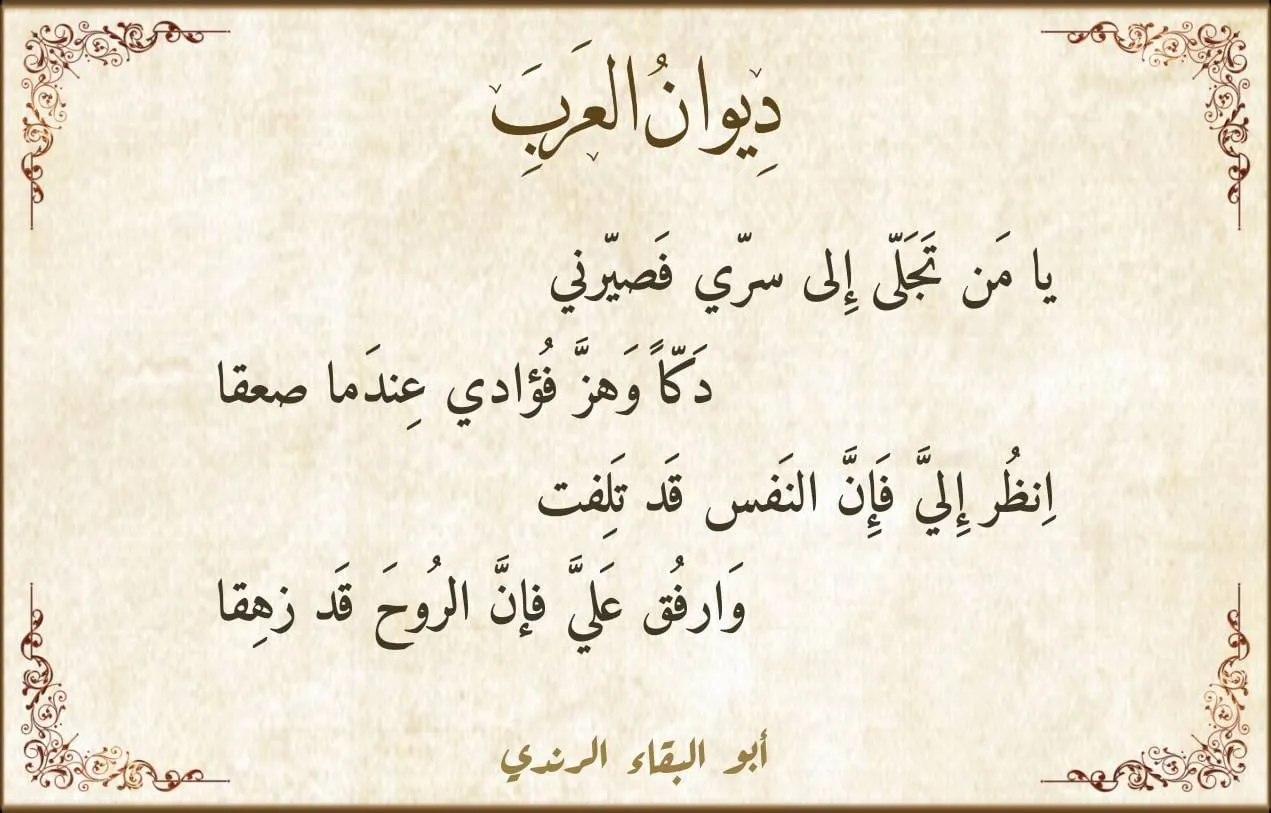 دِيوانُ العَرَبِ
يا مَن تَجَلّى إِلى سرّي فَصيّرني
دَكّاً وَهزَّ فُؤادي عِندَما صعقا
اِنظُر إِليَّ فَإِنَّ النَفس قَد تَلِفت
وَارفُق عَليَّ فإنَّ الروُحَ قَد زهِقا
أبو البقاء الرندي